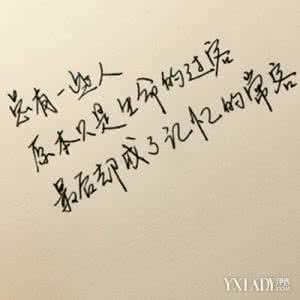 总有一些人
原本只是生命的过客
最后却成了记忆的常客
YXLADY伊秀
.com